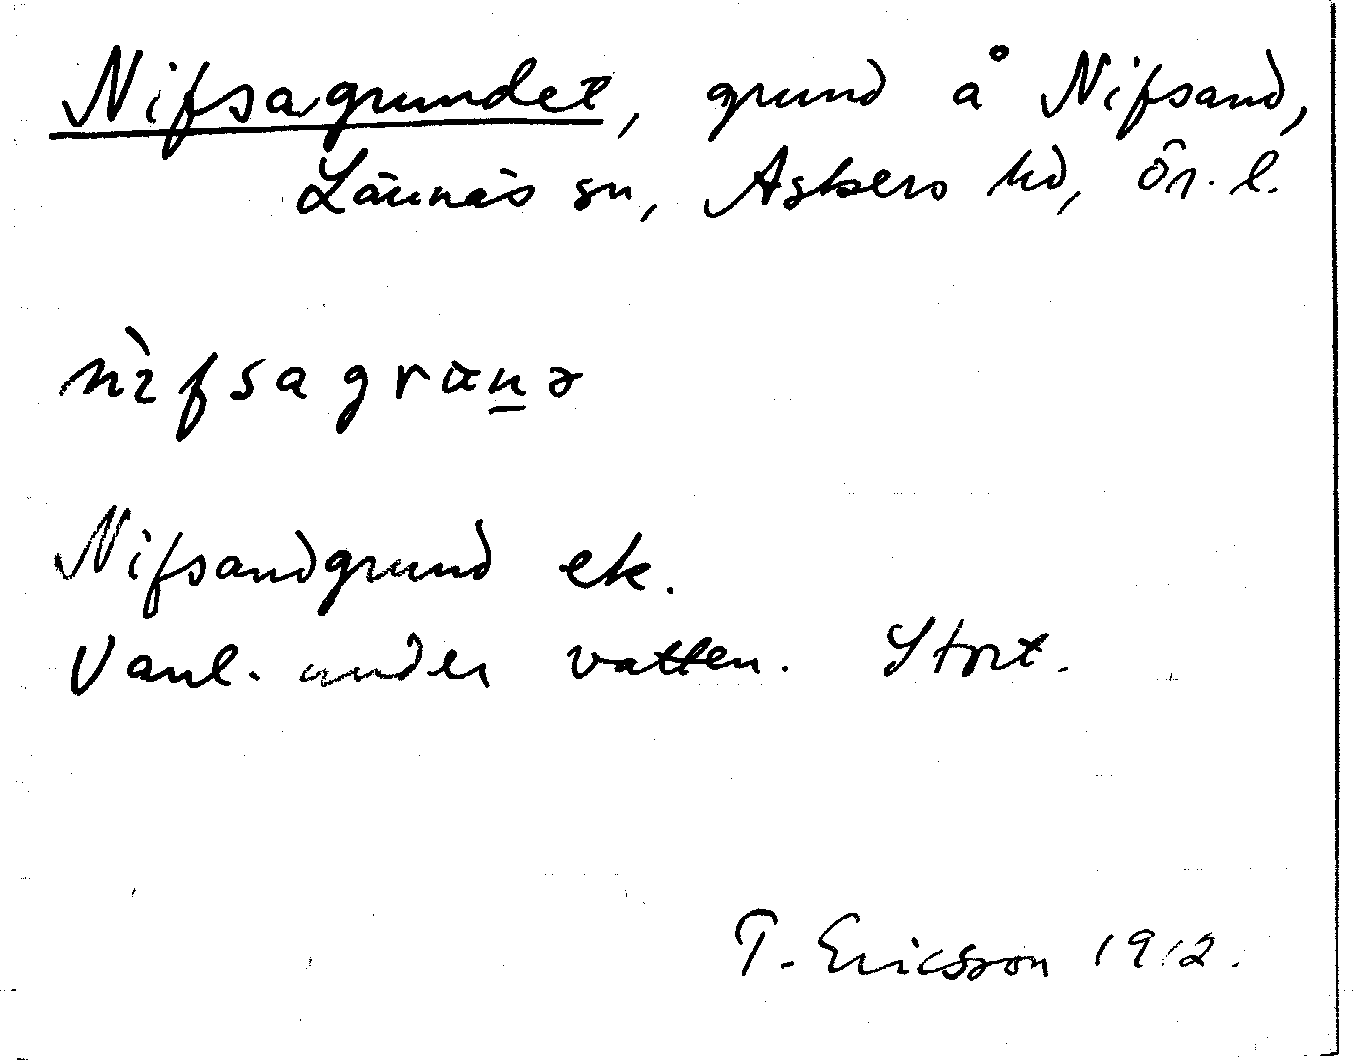 Nifsagrundet, grund å Nifsand,
Lännäs sn, Askers hd, Ör. l.
nìfsagrunə
Nifsandgrund ek.
Vanl. under vatten. Stort.
T. Ericsson 1912.